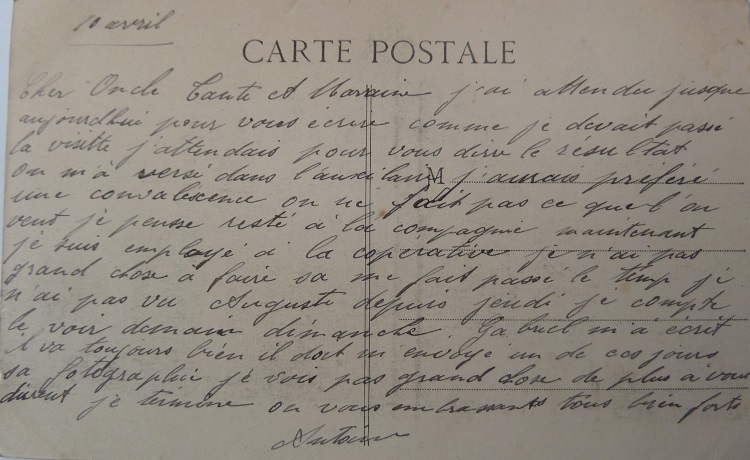 10 avril
CARTE POSTALE
Cher Oncle Tante et Marraine j'ai attendu jusque
aujourdhui pour vous écrire comme je devait passé
la visitte j'attendais pour vous dire le resultat
on m'a versé dans l'auxiliaire j'aurais préféré
M
une convalescence on ne fait pas ce que l'on
veut je pense resté à la compagnie maintenant
je suis employé a la coperative je n'ai pas
grand chose a faire sa me fait passé le temp je
n'ai pas vu Auguste depuis jeudi je compte
le voir demain dimanche Gabriel m'a écrit
il va toujours bien il doit m'envoyé un de ces jours
sa fotographie je vois pas grand chose de plus a vous
dire je termine en vous embrassants tous bien forts
Antoine